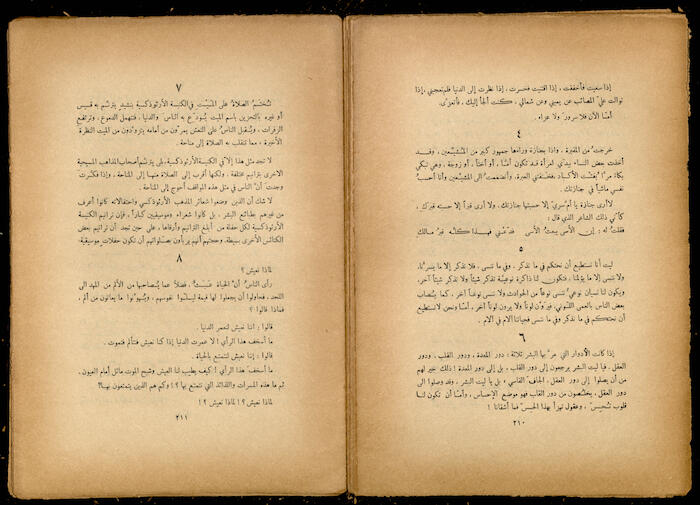 إذا سعيت فأخفقت ، إذا اقتنيت فخسرت ، إذا نظرت إلى الدنيا فلم تعجبني ، إذا
توالت عليّ المصائب عن يميني وعن شمالي . كنت ألجأ إليك ، فأتعزّى .
أمّا الآن فلا سرور ولا عزاء .
٤
خرجت من المقبرة ، وإذا بجنازة وراءها جمهور كبير من المشيّعين ، وقد
أخذت بعض النساء بيدَي امرأة قد تكون أمّاً ، أو أختاً ، أو زوجة ، وهي تبكي
بكاءً مرّاً يفتّت الأكباد ، فخنقتني العبرة ، وانضممت إلى المشيّعين وأنا أحسب
نفسي ماشياً في جنازتك .
لا أرى جنازة يا أم سري إلا حسبتها جنازتك ، ولا أرى قبراً إلا حسبته قبرك ،
كأني ذلك الشاعر الذي قال :
فقلت له : إن الأسى يبعث الأسى فدعني فهذا كلّه قبر مالك
٥
ليت أنا نستطيع أن نحتكم في ما نذكر . وفي ما ننسى . فلا نذكر إلا ما يسرّنا،
وننسى إلا ما يؤلمنا ، فتكون لنا ذاكرة نوعيّة تذكر شيئاً ولا تذكر شيئاً آخر ،
ويكون لنا نسيان نوعي ننسى نوعاً من الحوادث ولا ننسى نوعاً آخر . كما يُصاب
بعض الناس بالعمى اللوني ، فيرَون لوناً ولا يرون لوناً آخر . أمّا ونحن لا نستطيع
أن نحتكم في ما نذكر وفي ما ننسى فحياتنا آلام في آلام .
٦
إذا كانت الأدوار التي مرّ بها البشر ثلاثة : دور المعدة ، ودور القلب ، ودور
العقل . فيا ليت البشر يرجعون إلى دور القلب ، بل إلى دور المعدة ! ذلك خير لهم
من أن يصلوا إلى دور العقل . الجاف القاسي ، بل يا ليت البشر ، وقد وصلوا الى
دور العقل ، يتخلّصون من دور القلب فهو موضع الإحساس ، وأمّا أن تكون لنا
قلوب تُحسّ ، وعقول تهزأ بهذا الحسّ فما أشقانا !
٢١٠
٧
تُختتم الصلاة على الميت في الكنيسة الأرثوذكسية بنشيد يترنّم به قسيس
أو غيره بالتحزين باسم الميت يودّع به الناس والدنيا ، فتنهمل الدموع ، وترتفع
الزفرات ، ويُقبل الناس على النعش يمرّون من أمامه يتزودون من الميت النظرة
الأخيرة ، مما تنقلب به الصلاة إلى مناحة .
لا تجد مثل هذا إلا في الكنيسة الأرثوذكسية ، بلى يترنّم أصحاب المذاهب المسيحية
الاخرى بترانيم مختلفة ، ولكنها أقرب إلى الصلاة منها إلى المناحة ، وإذا فكّرت
وجدت أنّ الناس في مثل هذه المواقف أحوج إلى المناحة .
لا شك أن الذين وضعوا شعائر المذهب الأرثوذكسي واحتفالاته كانوا أعرف
من غيرهم بطبائع البشر ، بل كانوا شعراء وموسيقيين كباراً ، فإن ترانيم الكنيسة
الأرثوذكسية لكل حفلة من أبلغ الترانيم وأرقاها ، على حين تجد أن ترانيم بعض
الكنائس الأخرى بسيطة ، وحجتهم أنهم يربأون بصلواتهم أن تكون حفلات موسيقية.
٨
لماذا نعيش ؟
رأى الناس أن الحياة عبث ، فضلاً عما يُصاحبها من الألم من المهد الى
اللحد ، فحاولوا أن يجعلوا لها قيمة ليسلّوا نفوسهم ، وليهوّنوا ما يعانون من ألم ،
فماذا قالوا ؟
قالوا : إننا نعيش لنعمر الدنيا .
ما أسخف هذا الرأي ! لا عمرت الدنيا إذا كنا نعيش فنتألم فنموت .
قالوا : إننا نعيش لنتمتع بالحياة .
ما أسخف هذا الرأي ! كيف يطيب لنا العيش وشبح الموت ماثل أمام العيون .
ثم ما هذه المسرات واللذائذ التي نتمتع بها ؟! وكم هم الذين يتمتعون بها ؟!
لماذا نعيش ؟! لماذا نعيش ؟!
٢١١